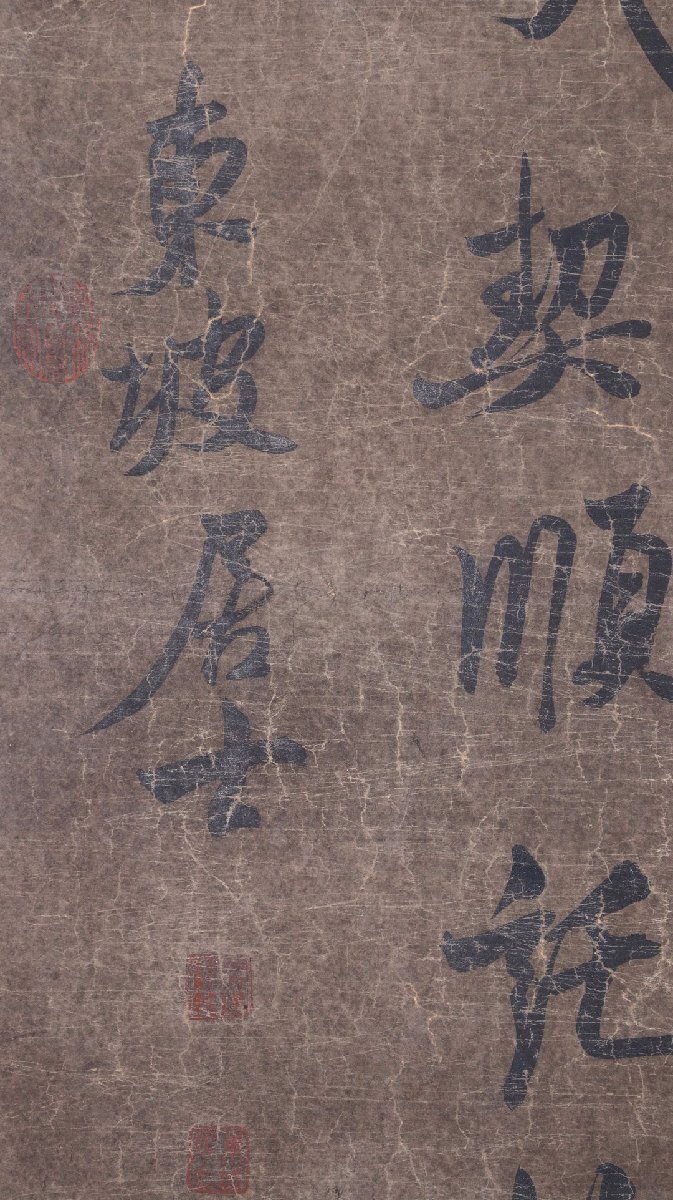 契順託
東坡居士